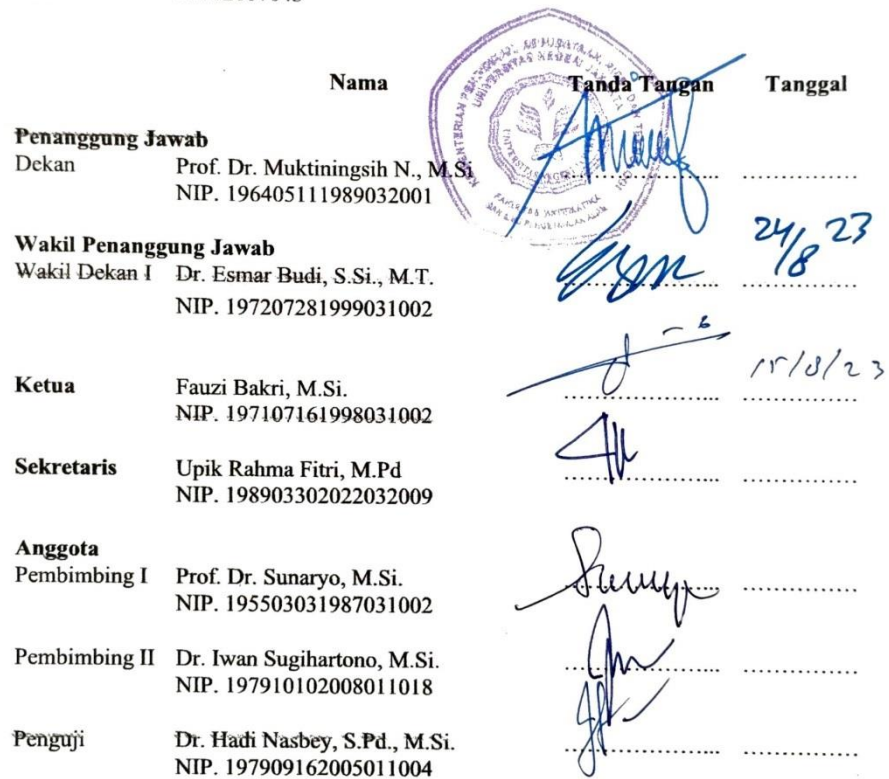 Nama Tanda Tangan Tanggal
Penanggung Jawab
Dekan Prof. Dr. Muktiningsih N., M.Si
NIP. 196405111989032001
Wakil Penanggung Jawab
Wakil Dekan I Dr. Esmar Budi, S.Si., M.T. 24/8 23
NIP. 197207281999031002
Ketua Fauzi Bakri, M.Si. 15/8/23
NIP. 197107161998031002
Sekretaris Upik Rahma Fitri, M.Pd
NIP. 198903302022032009
Anggota
Pembimbing I Prof. Dr. Sunaryo, M.Si.
NIP. 195503031987031002
Pembimbing II Dr. Iwan Sugihartono, M.Si.
NIP. 197910102008011018
Penguji Dr. Hadi Nasbey, S.Pd., M.Si.
NIP. 197909162005011004